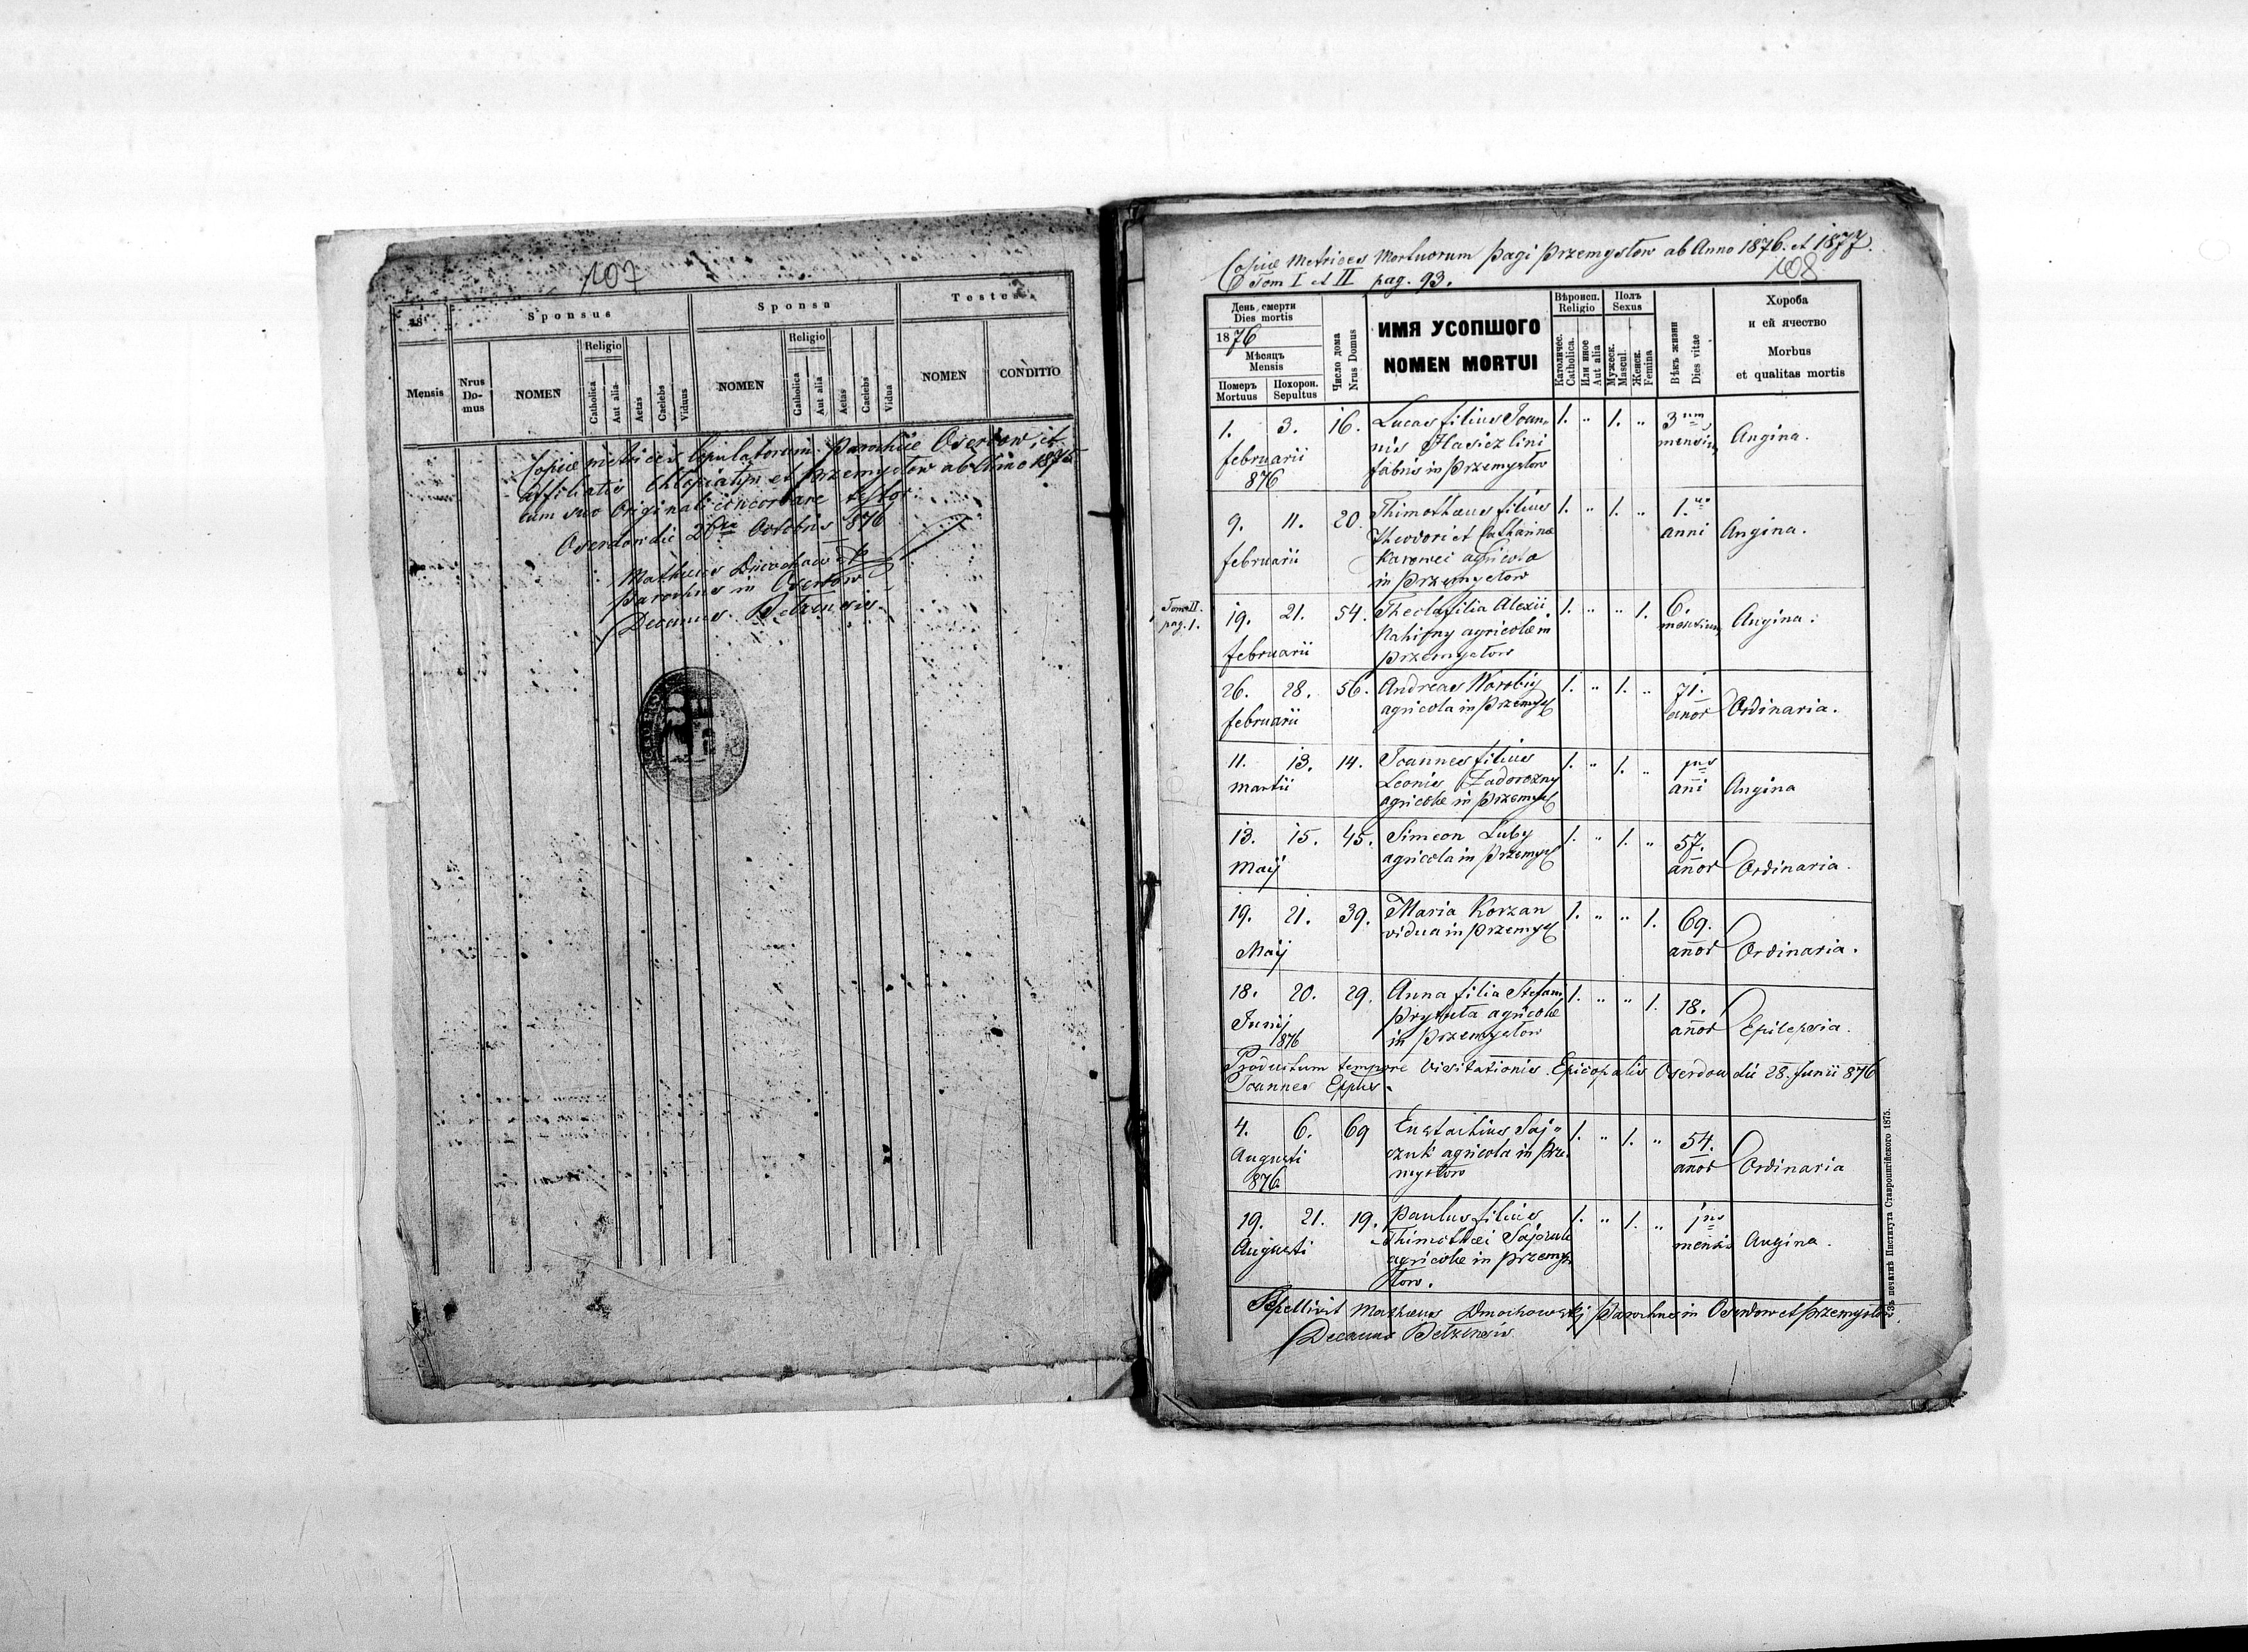 107
18
Sponsus
Sponsa
Testes
Mensis
Nrus Do-mus
NOMEN
Religio
Catholica
Aut alia
Aetas
Caelebs
Viduus
NOMEN
Religio
Catholica
Aut alia
Aetas
Caelebs
Vidua
NOMEN
CONDITIO
Copiae metrices Copulatorum Parochiae Oserdow, et
affiliatis Chlopiatyn et Przemysłow ab Anno 1875
cum suo Originali concordare testor
Oserdow die Octobris 1876
Parochus in Oserdow
Decanus Belzensis
Copiae Metrices Mortuorum pagi Przemysłow ab Anno 1876. et 1877.
Tom I et II pag. 93.
108
День смерти
Dies mortis
1876
Мѣсяцъ
Mensis
Померъ
Mortuus
Похорон.
Sepultus
Число дома
Nrus Domus
ИМЯ УСОПШОГО
NOMEN MORTUI
Вѣроисп.
Religio
Католичес.
Catholica.
Или иное
Aut alia
Полъ
Sexus
Мужеск.
Mascul.
Женск.
Femina
Вѣкъ жизни
Dies vitae
Хороба
и ей ячество
Morbus
et qualitas mortis
1. 3. 16. Lucas filius Joan-
nis
februarii fabris in Przemysłow
876
1. " 1. " 3um mensium Angina.
9. 11. 20. Thimothaeus filius
Theodori et Catharinae
februarii Karowci agricola
in Przemysłow
1. " 1. " 1.us anni Angina.
Tom II.
pag. 1.
19. 21. 54. Thecla filia Alexii
Nahirny agricolae in
februarii Przemysłow
1. " " 1. 6. mensium Angina.
26. 28. 56. Andreas Worobiy
februarii agricola in Przemysł
1. " 1. " 71. anor Ordinaria.
11. 13. 14. Joannes filius
martii Leonis Zadorozny
agricolae in Przemysł
1. " 1. " 1us ani Angina
13. 15. 45. Simeon Luby
Maij agricola in Przemysł
1. " 1. " 57. anor Ordinaria.
19. 21. 39. Maria Korzan
Maij vidua in Przemysł
1. " " 1. 69. anor Ordinaria.
18. 20. 29. Anna filia Stefani
Junij agricolae
876 in Przemysłow
1. " " 1. 18. anor Epilepsia.
Productum tempore Visitationis Epicopalis Oserdow die 28. Junii 876
Joannes Eppus.
4. 6. 69 Eustachius Saj-
Augusti czuk agricola in Prze
876 mysłow
1. " 1. " 54. anor Ordinaria
19. 21. 19. Paulus filius
Augusti Thimothei Sajczuk
agricolae in Przemys
łow.
1. " 1. " 1us mensis Angina.
Sepellivit Mathaeus Dmochowskij Parochus in Oserdow et Przemysłow.
Decanus Belzensis
Въ печатнѣ Института Ставропигійского 1875.